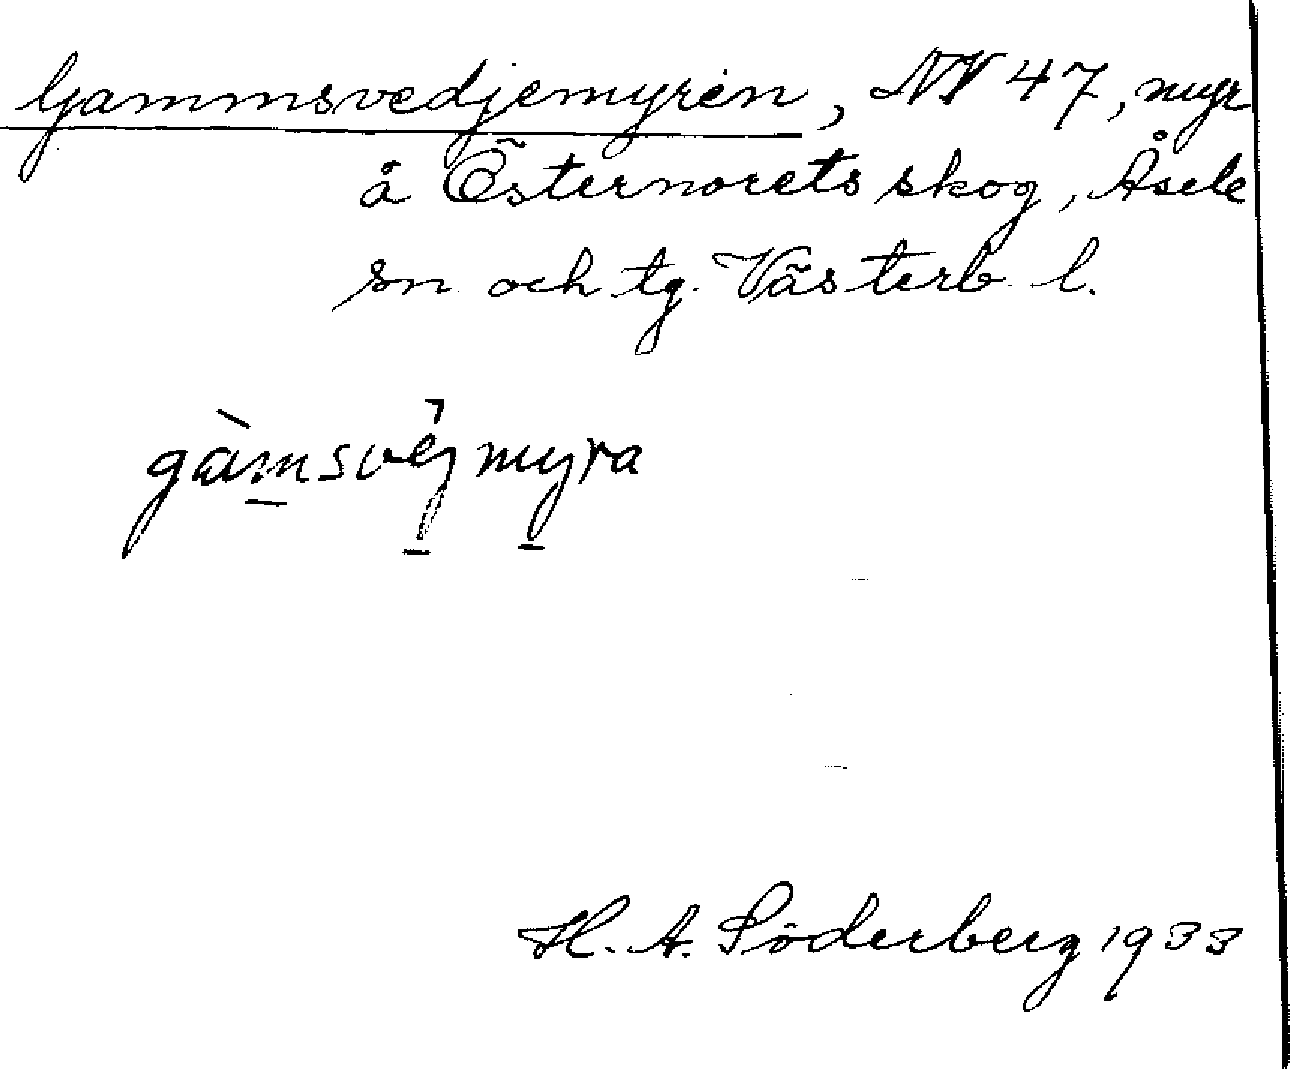 Gammsvedjemyren, NV 47, myr
å Östernorets skog, Åsele
sn och tg. Västerb. l.
gàmsvèjmyra
H. A. Söderberg 1933